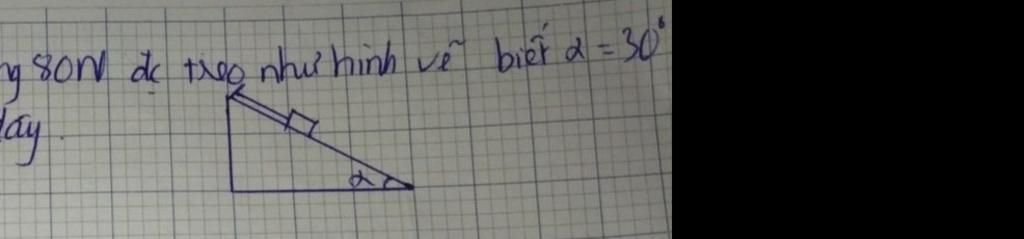 g 80N đc treo như hình vẽ biết α = 30°
dây.
α